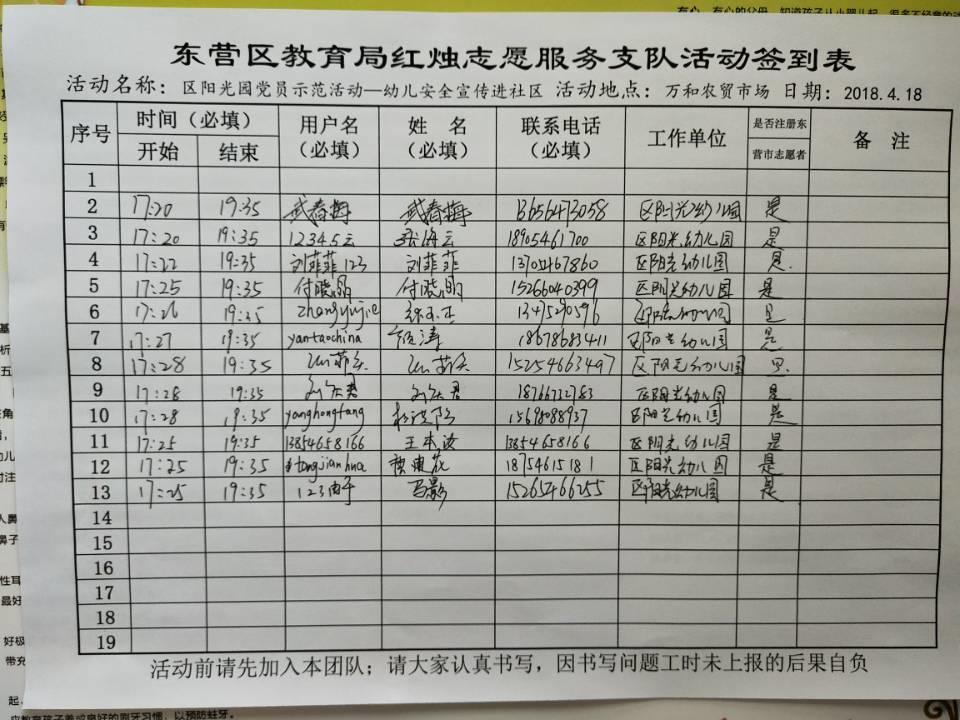 东营区教育局红烛志愿服务支队活动签到表
活动名称：区阳光园党员示范活动—幼儿安全宣传进社区 活动地点：万和农贸市场 日期：2018.4.18
序号 时间（必填） 用户名（必填） 姓 名（必填） 联系电话（必填） 工作单位 是否注册东营市志愿者 备 注
开始 结束
1
2 17:20 19:35 武春梅 武春梅 13656473058 区阳光幼儿园 是
3 17:20 19:35 12345云 张海云 18905461700 区阳光幼儿园 是
4 17:22 19:35 刘菲菲123 刘菲菲 区阳光幼儿园 是.
5 17:25 19:35 付晓晶 付晓晶 15266040399 区阳光幼儿园 是
6 17:26 19:35 区阳光幼儿园 是
7 17:27 19:35 yantaochina 18678683411 区阳光幼儿园 是
8 17:28 19:35 15254663497 区阳光幼儿园 是
9 17:28 19:35 18766732783 区阳光幼儿园 是
10 17:28 19:35 yanghongfang 15698088937 区阳光幼儿园 是
11 17:25 19:35 13854658166 13854658166 区阳光幼儿园 是
12 17:25 19:35 18754615181 区阳光幼儿园 是
13 17:25 19:35 马影 15265466255 区阳光幼儿园 是
14
15
16
17
18
19
活动前请先加入本团队；请大家认真书写，因书写问题工时未上报的后果自负